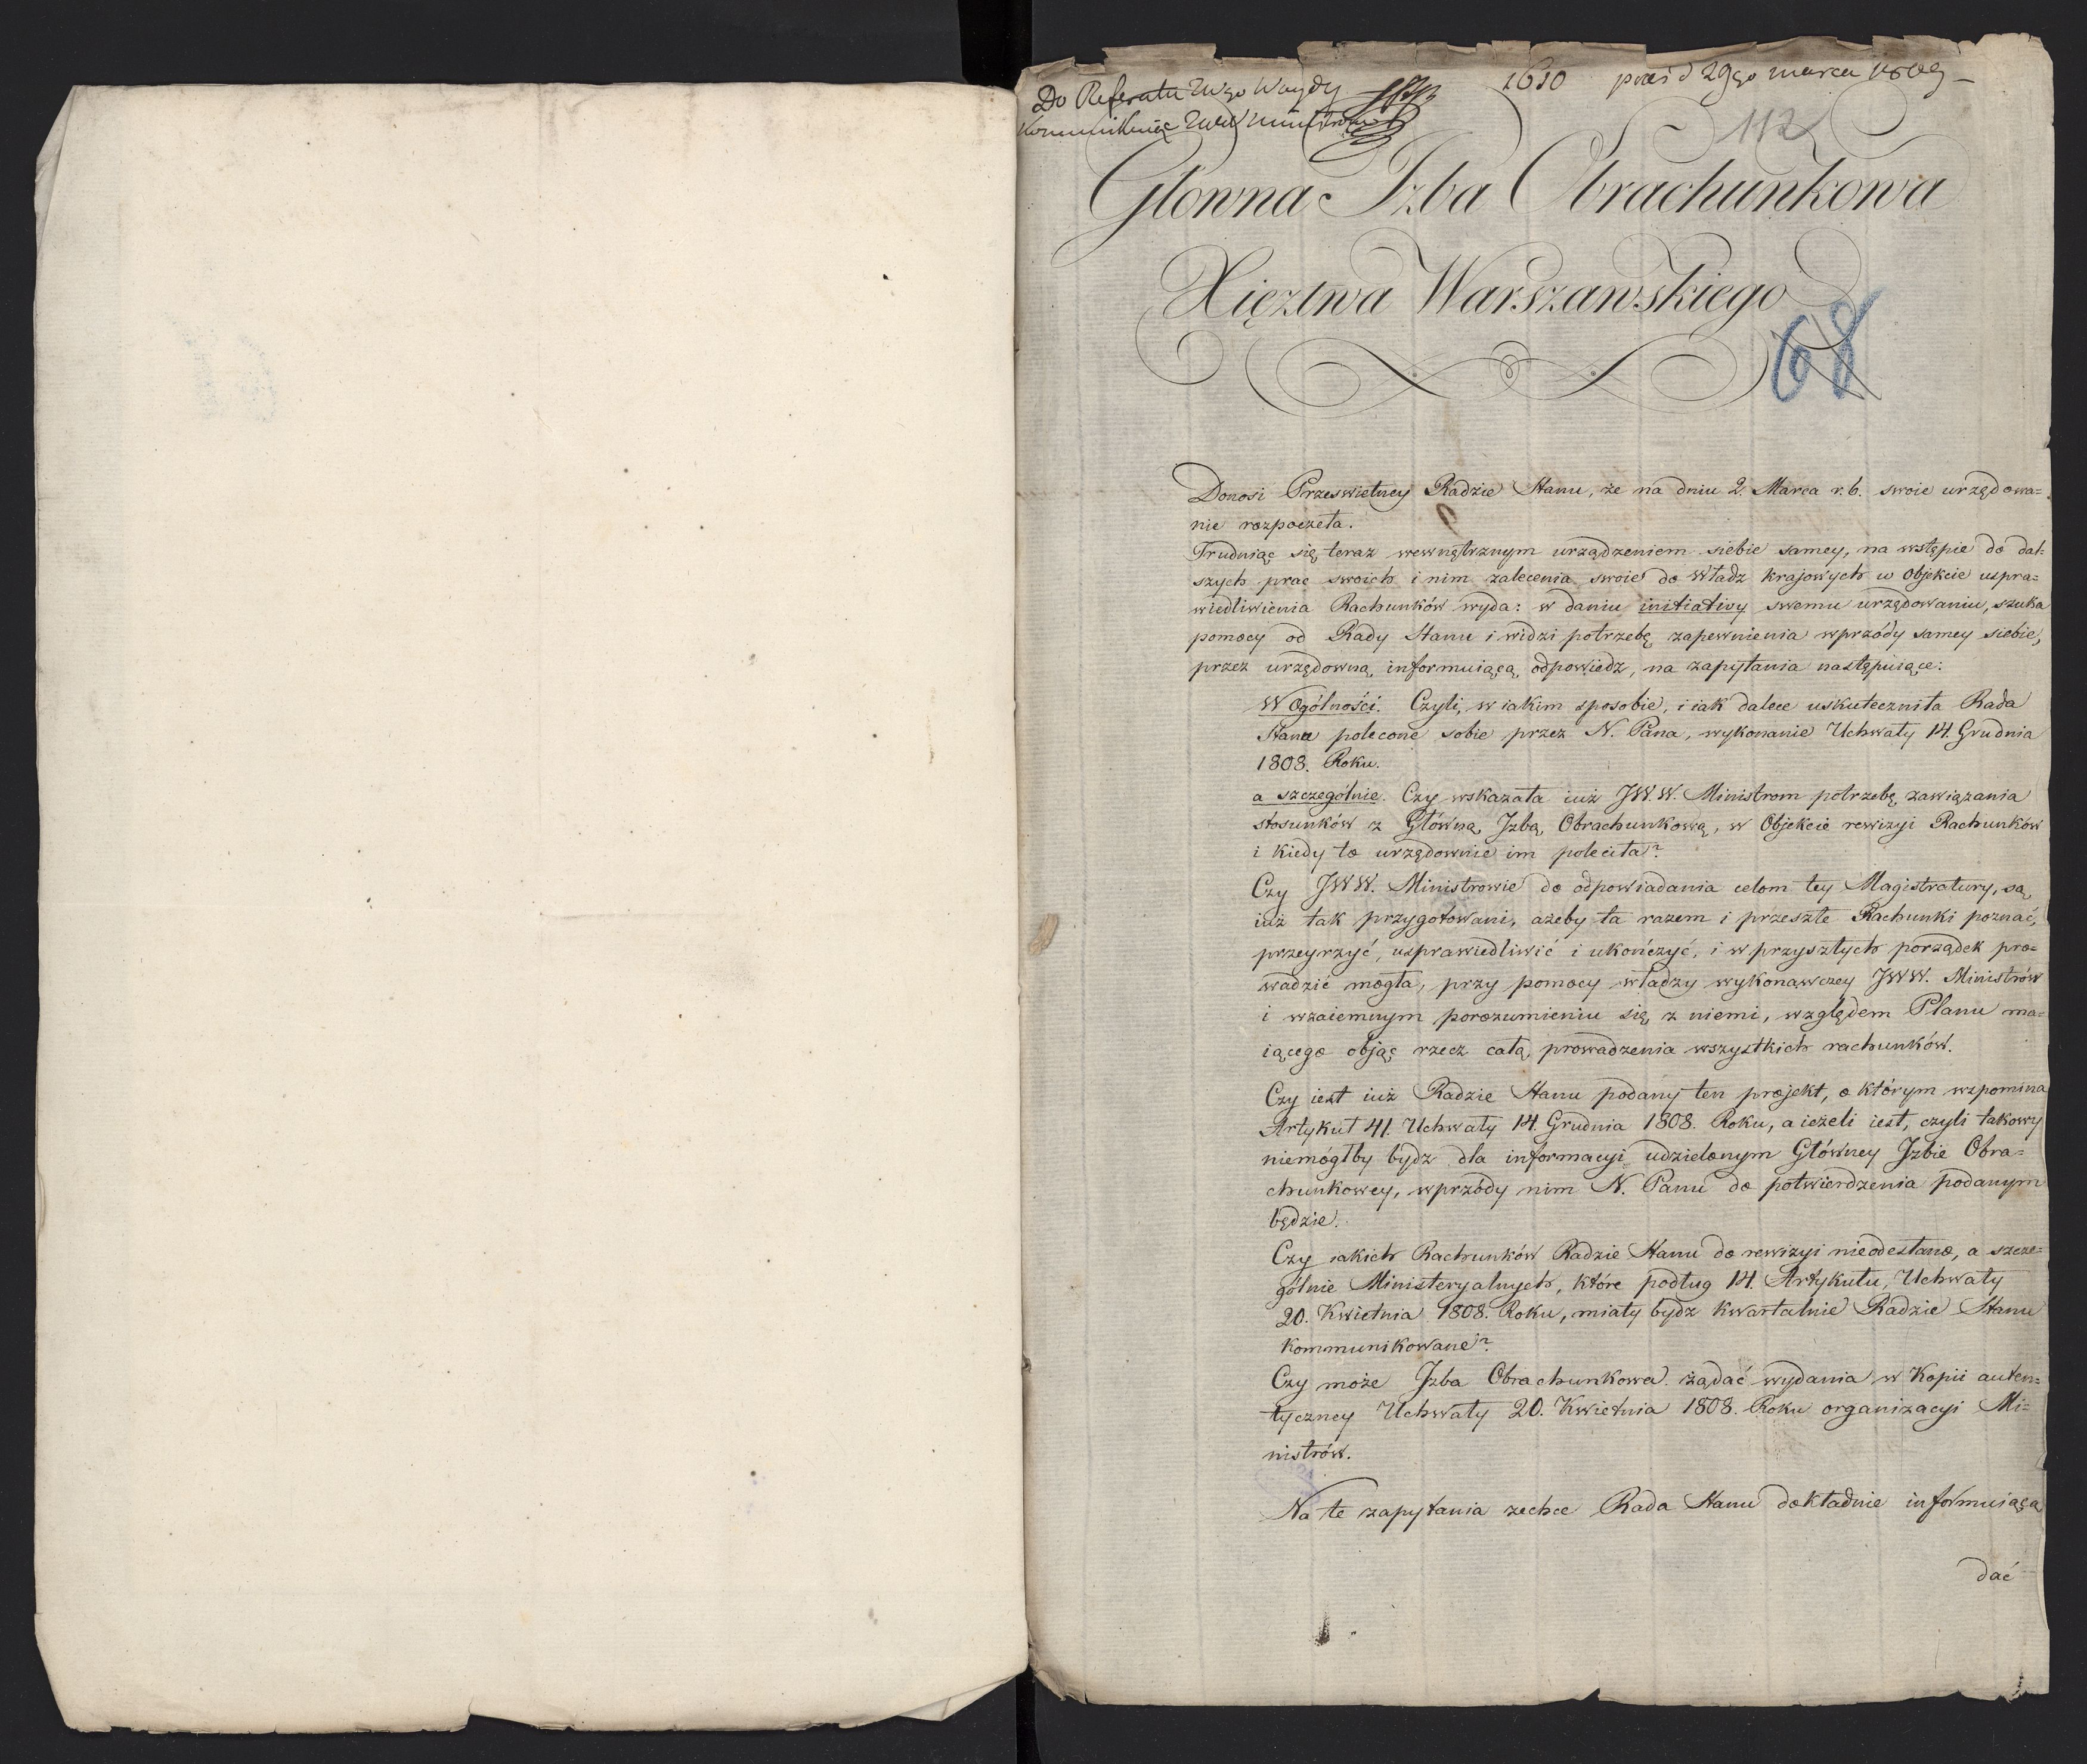 Do Referatu JWgo Woydy
1610 præs d 29go marca 1809
112
Główna Izba Obrachunkowa
Xięztwa Warszawskiego
68
Donosi Przeswietney Radzie Stanu, że na dniu 2. Marca r. b. swoie urzędowa=
nie rozpoczęta.
Trudniąc się teraz wewnętrznym urządzeniem siebie samey, na wstępie do dal=
szych prac swoich i nim zalecenia swoie do Władz krajowych w Objekcie uspra=
wiedliwienia Rachunków wyda: w daniu initiativy swemu urzędowaniu, szuka
pomocy od Rady Stanu i widzi potrzebę zapewnienia wprzódy samey siebie,
przez urzędowną, informuiącą odpowiedz, na zapytania następuiące:
W Ogólności. Czyli, w iakim sposobie, i iak dalece uskuteczniła Rada
Stanu polecone sobie przez N. Pana, wykonanie Uchwały 14. Grudnia
1808. Roku.
a szczególnie. Czy wskazała iuż JW.W. Ministrom potrzebę zawiązania
stosunków z Główną Jzbą Obrachunkową, w Objekcie rewizyi Rachunków
i kiedy to urzędownie im poleciła?
Czy JWW. Ministrowie do odpowiadania celom tey Magistratury, są
iuż tak przygotowani, ażeby ta razem i przeszłe Rachunki poznać,
przeyrzyć, usprawiedliwić i ukończyć, i w przyszłych porządek pro=
wadzić mogła, przy pomocy władzy wykonawczey JWW. Ministrów
i wzaiemnym porozumieniu się z niemi, względem Planu ma=
iącego objąć rzecz całą prowadzenia wszystkich rachunków.
Czy iest iuż Radzie Stanu podany ten projekt, o którym wspomina
Artykuł 41. Uchwały 14. Grudnia 1808. Roku, a ieżeli iest, czyli takowy
niemógłby bydz dla informacyi udzielonym Główney Jzbie Obra=
chunkowey, wprzódy nim N. Panu do potwierdzenia podanym
będzie.
Czy iakich Rachunków Radzie Stanu do rewizyi nieodesłano, a szcze=
gólnie Ministeryalnych, które podług 14. Artykułu, Uchwały
20. Kwietnia 1808. Roku, miały bydz kwartalnie Radzie Stanu
kommunikowane?
Czy może Jzba Obrachunkowa żądać wydania w Kopii auten=
tyczney Uchwały 20. Kwietnia 1808. Roku organizacyi Mi=
nistrów.
Na te zapytania zechce Rada Stanu dokładnie informuiącą
dać